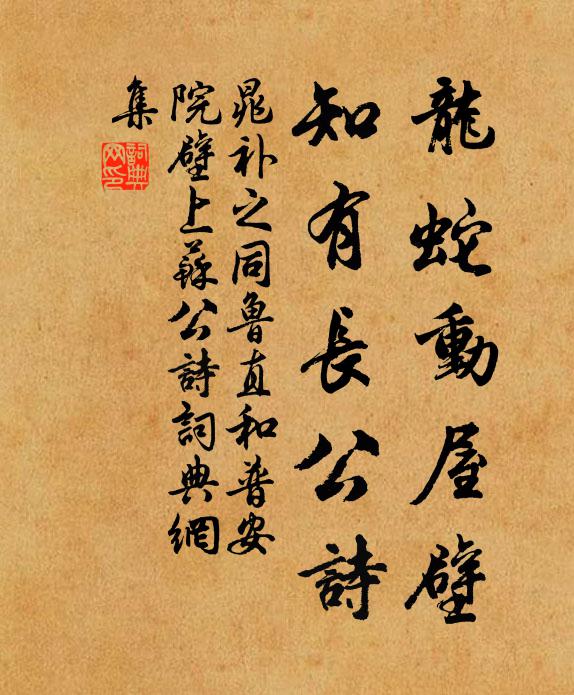 龍蛇動屋壁
知有長公詩
晁补之同魯直和普安
院壁上蘇公詩詞典網
集
詞典網印